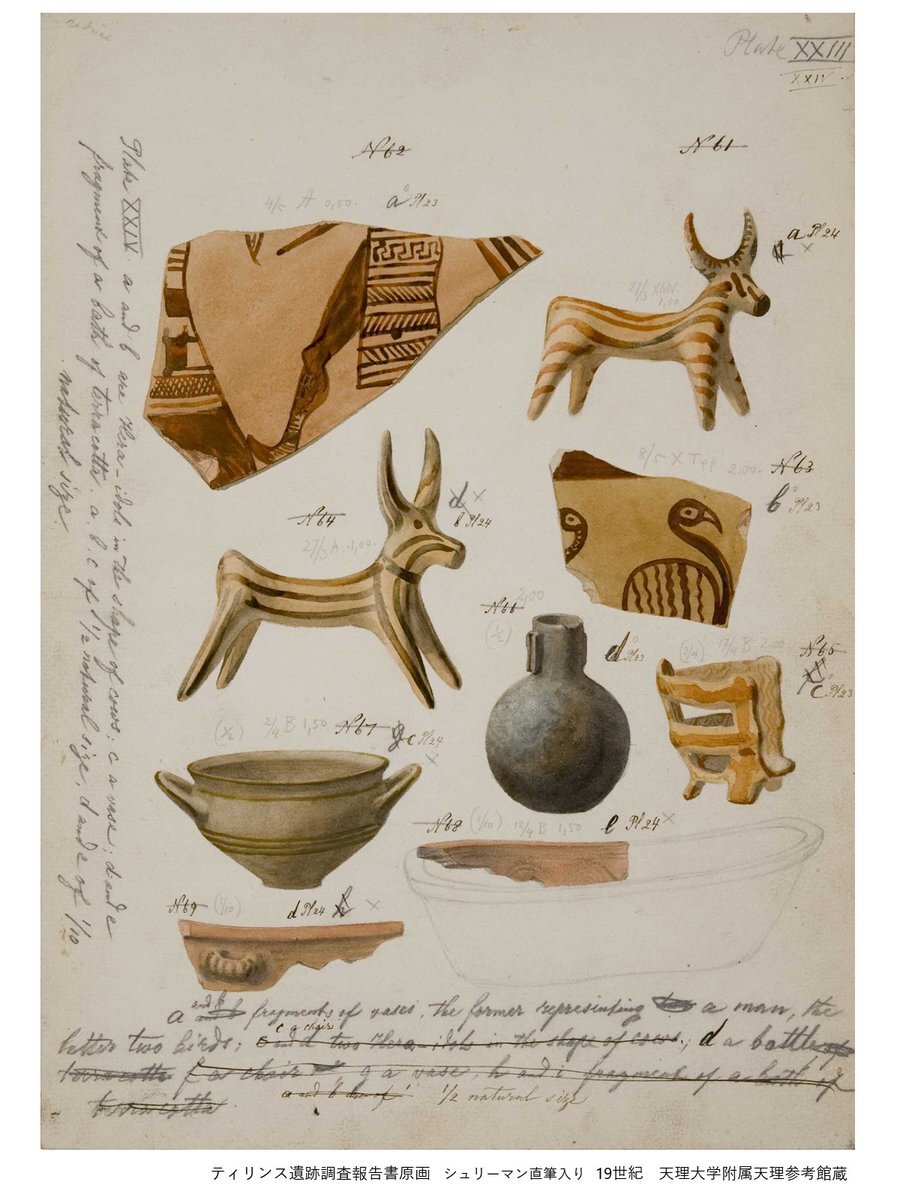 Plate XXIII
XXIV
N 62
N 61
4/5 A 0,50.
a Pl 23
a Pl 24
27/3 XGN 1,00
8/5 X Tep 2,00.
N 63
b Pl 23
N 64
d
b Pl 24
27/3 A 1,00.
N 66
2,00
(1/2)
d Pl 23
(3/4) 17/4 B 2,00
N 65
c Pl 23
(1/2) 2/4 B 1,50
N 67
g c Pl 24
N 68
(1/10) 12/4 B 1,50
e Pl 24
N 69
(1/10)
d Pl 24
Plate XXIV a and b are Hera-idols in the shape of cows; c a vase; d and e
fragments of a bath of terracotta. a. b. c of 1/2 natural size, d and e of 1/10
natural size
and b
a fragments of vases, the former representing a man, the
c a chair
latter two birds; c and d two Hera-idols in the shape of cows.; d a bottle of
terracotta f a chair g a vase, h and i fragment of a bath of
terracotta
a and b 1/2 natural size
ティリンス遺跡調査報告書原画 シュリーマン直筆入り 19世紀 天理大学附属天理参考館蔵